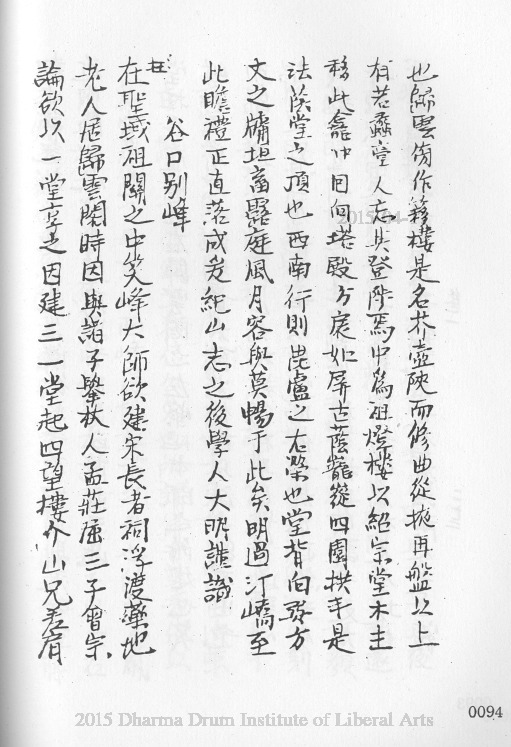 也歸雲傍作籜樓是名芥壺陝而修曲從掖再盤以上
有若螽壹人忘其登陟焉中為祖燈樓以紹宗堂木主
移此龕中日向塔殿方扆如屏古蔭巃從四圍拱手是
法蔭堂之頂也西南行則毘盧之左榮也堂背向彌方
文之墉坦畜露庭風月容與莫暢于此矣明過汀嶠至
此瞻禮正直落成爰紀山志之後學人大明謹識
谷口別峰
在聖域祖關之中笑峰大師欲建宋長者祠浮渡藥地
老人居歸雲閣時因與諸子擧杖人孟莊屈三子會宗
論欲以一堂享之因建三一堂起四望樓介山兄差肩
0094
2015 Dharma Drum Institute of Liberal Arts